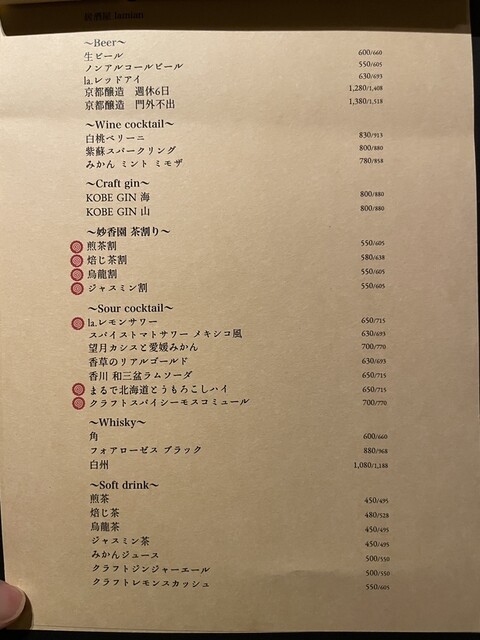 居酒屋 lamian
〜Beer〜
生ビール 600/660
ノンアルコールビール 550/605
la.レッドアイ 630/693
京都醸造 週休6日 1,280/1,408
京都醸造 門外不出 1,380/1,518
〜Wine cocktail〜
白桃ベリーニ 830/913
紫蘇スパークリング 800/880
みかん ミント ミモザ 780/858
〜Craft gin〜
KOBE GIN 海 800/880
KOBE GIN 山 800/880
〜妙香園 茶割り〜
煎茶割 550/605
焙じ茶割 580/638
烏龍割 550/605
ジャスミン割 550/605
〜Sour cocktail〜
la.レモンサワー 650/715
スパイストマトサワー メキシコ風 630/693
望月カシスと愛媛みかん 700/770
香草のリアルゴールド 630/693
香川 和三盆ラムソーダ 650/715
まるで北海道とうもろこしハイ 650/715
クラフトスパイシーモスコミュール 700/770
〜Whisky〜
角 600/660
フォアローゼス ブラック 880/968
白州 1,080/1,188
〜Soft drink〜
煎茶 450/495
焙じ茶 480/528
烏龍茶 450/495
ジャスミン茶 450/495
みかんジュース 500/550
クラフトジンジャーエール 500/550
クラフトレモンスカッシュ 550/605